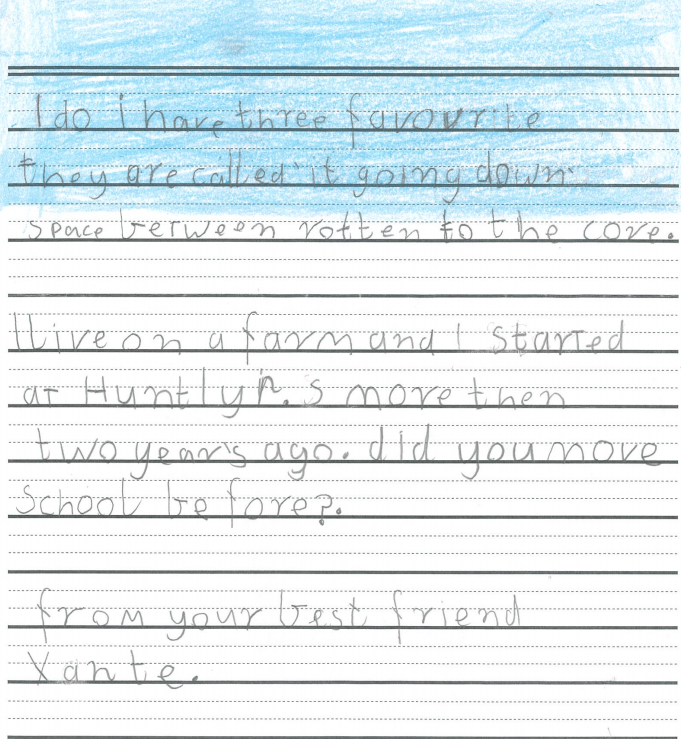 I do i have three favourite
they are called it going down
space between rotten to the core.
I live on a farm and I started
at Huntly P.S more then
two years ago. did you move
school before?.
from your best friend
Xante.